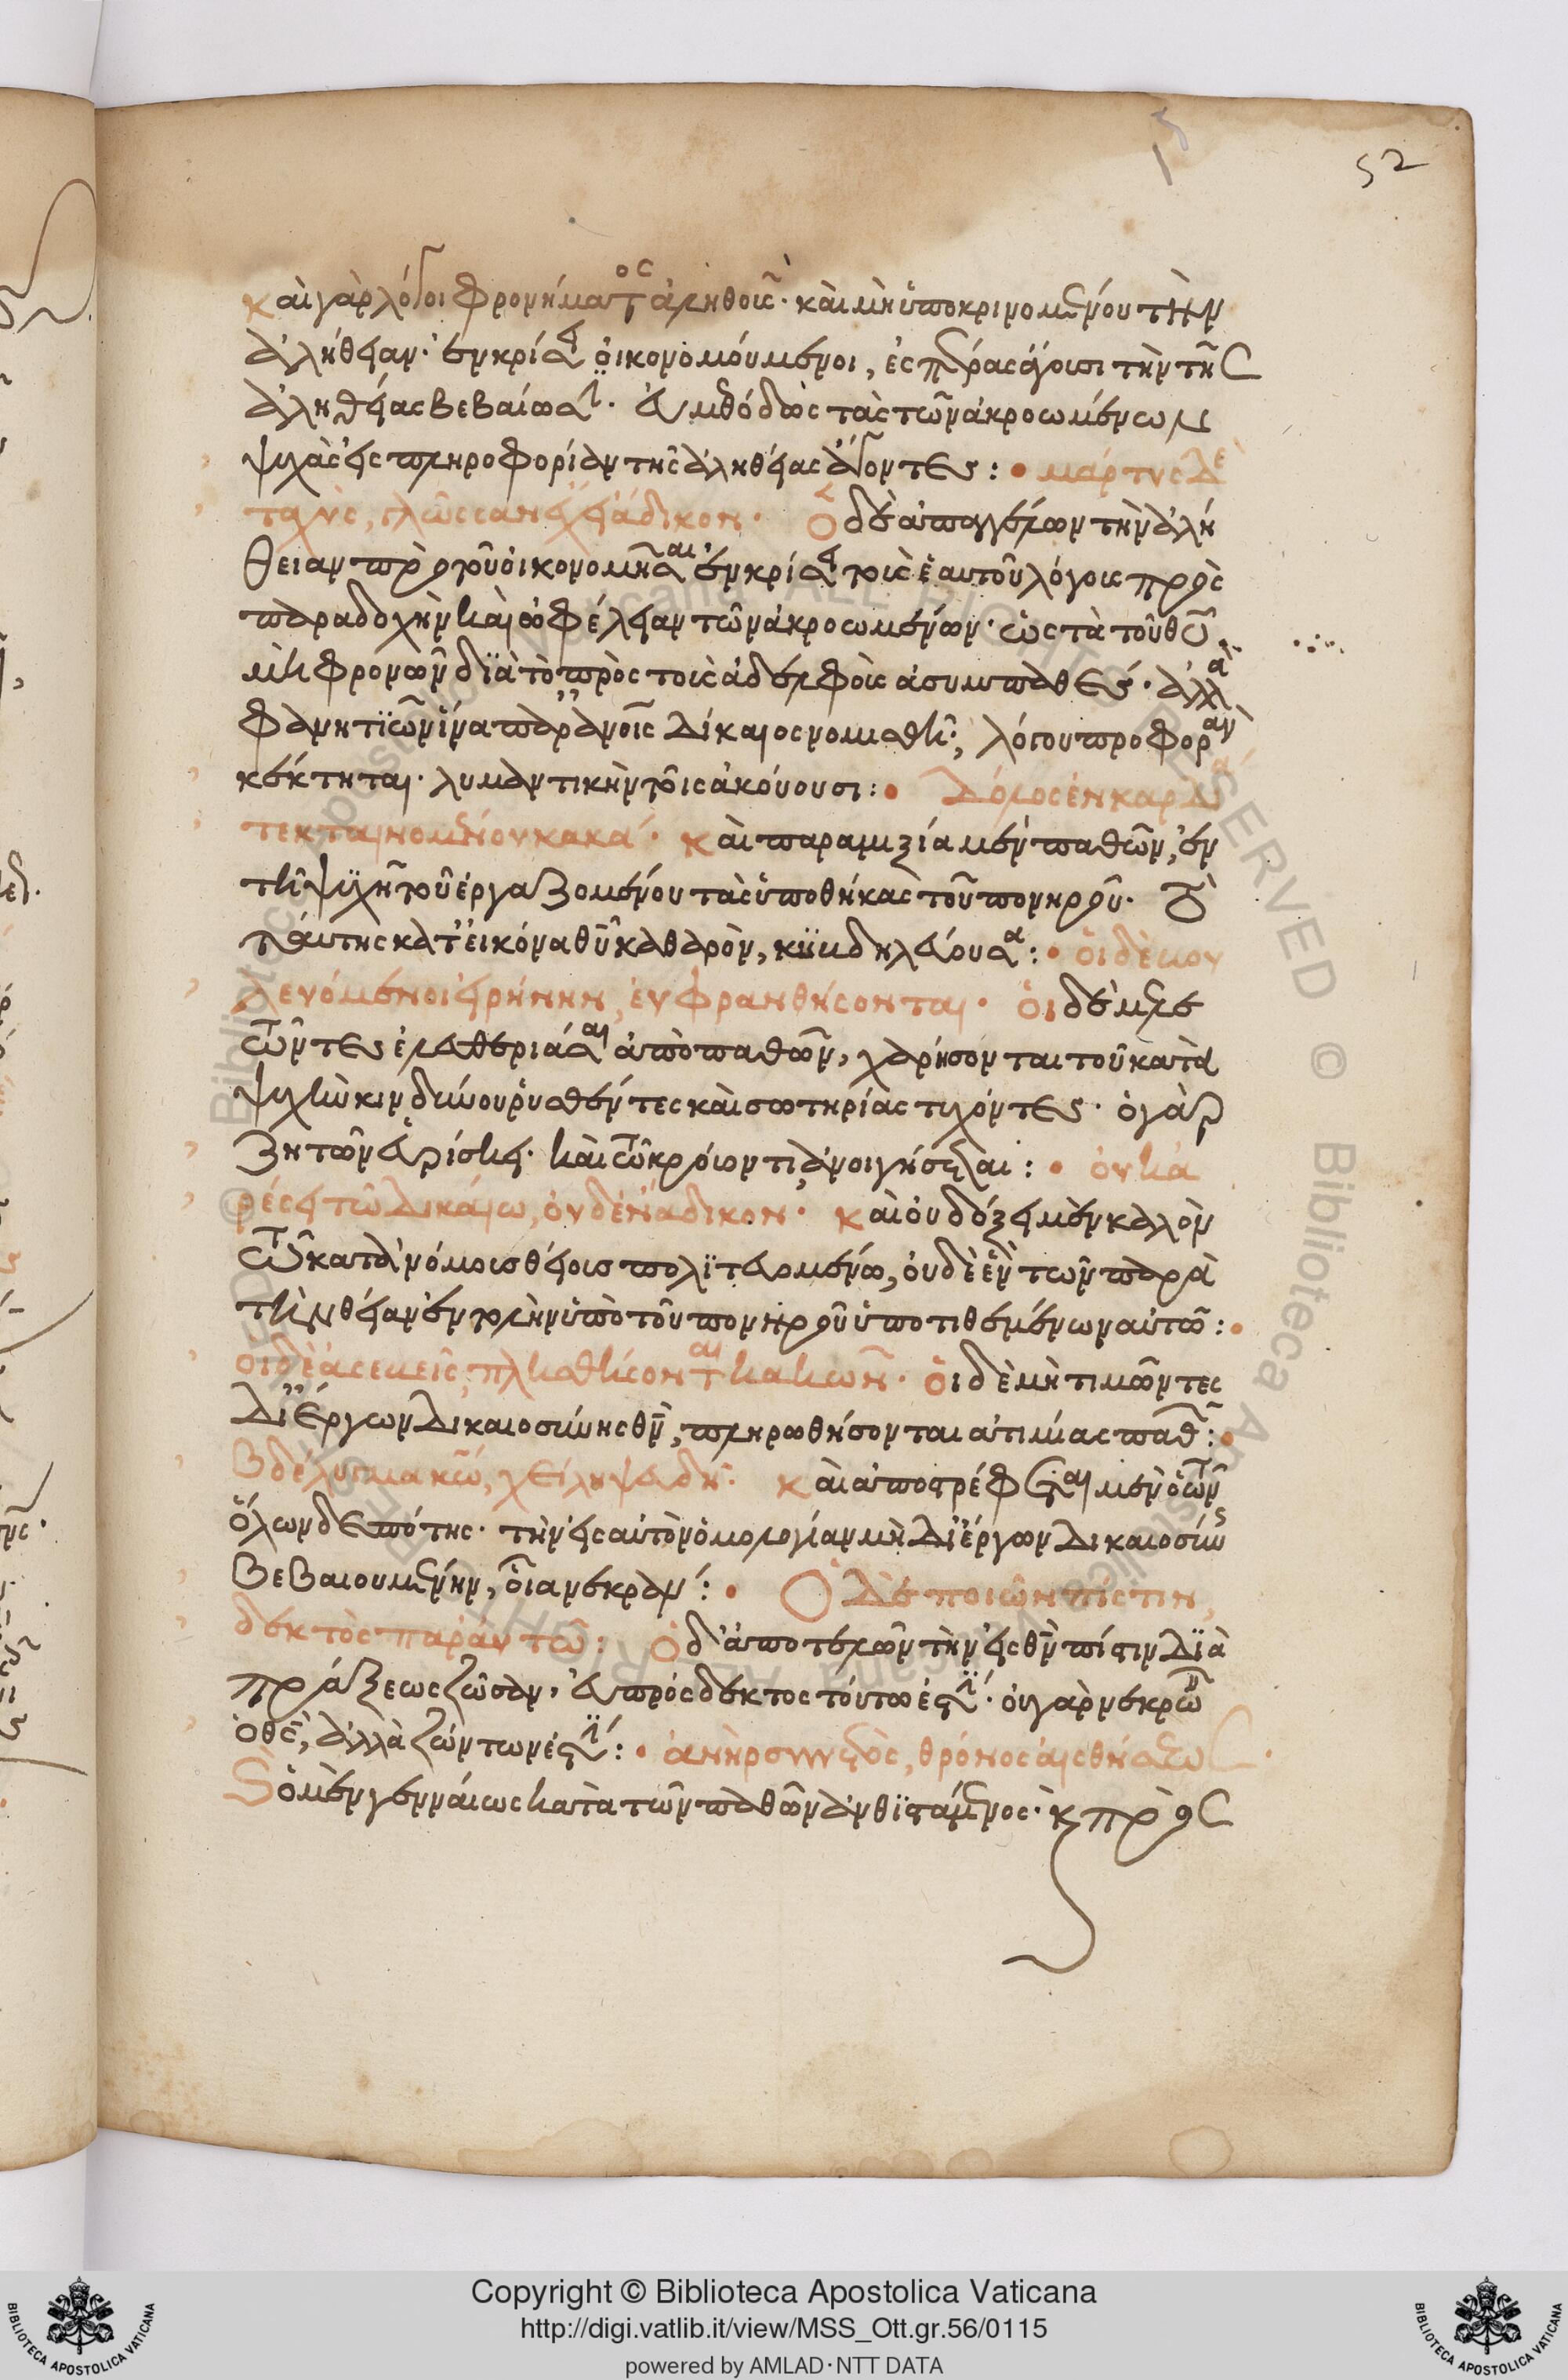 52
καὶ γὰρ λόγοι φρονήματος ἀληθοῦς· καὶ μὴ ὑποκρινομένου τὴν
ἀλήθειαν· ἐν κρίσει οἰκονομούμενοι, ἐς πέρας ἄγουσι τὴν τῆς
ἀληθείας βεβαίωσιν· εὐμεθόδως τὰς τῶν ἀκροωμένων
ψυχὰς εἰς πληροφορίαν τῆς ἀληθείας ἄγοντες: • μάρτυς δὲ
ταχὺς, γλῶσσαν ἔχει ἄδικον· ὁ δὲ ἀπαγγέλων τὴν ἀλή
θειαν πρὸ τοῦ οἰκονομῆσαι ἐν κρίσει τοὺς ἑαυτοῦ λόγους πρὸς
παραδοχὴν καὶ ὠφέλειαν τῶν ἀκροωμένων· ὡς τὰ τοῦ θυ
μὴ φρονῶν διὰ τὸ πρὸς τοὺς ἀδελφοὺς ἀσυμπαθὲς· ἀλλὰ
φανητιῶν ἵνα παρ' ἀνοις δίκαιος νομισθῆ, λόγου προφορὰν
κέκτηται· λυμαντικὴν τοῖς ἀκούουσι: • Δόλος ἐν καρδία
τεκταινομένου κακά· καὶ παραμιξία μὲν παθῶν, ἐν
τῆ ψυχῆ τοῦ ἐργαζομένου τὰς ὑποθήκας τοῦ πονηροῦ· τὸ
ταύτης κατ' εἰκόνα θυ καθαρὸν, κιβδηλεύουσα: • οἱ δὲ βου
λευόμενοι εἰρήνην, εὐφρανθήσονται· οἱ δὲ μελε
τῶντες ἐλευθεριάσαι ἀπὸ παθῶν, χαρήσονται τοῦ κατὰ
ψυχὴν κινδύνου ῥυσθέντες καὶ σωτηρίας τυχόντες· ὁ γὰρ
ζητῶν εὑρίσκει· καὶ τῶ κρούοντι ἀνοιγήσεται: • οὐκ ἀ
ρέσει τῶ δικαίω, οὐδὲν ἄδικον· καὶ οὐ δόξει μὲν καλὸν
τῶ κατὰ νόμους θείους πολιτευομένω, οὐδὲ ἓν τῶν παρὰ
τὴν θείαν ἐντολὴν ὑπὸ τοῦ πονηροῦ ὑποτιθεμένων αὐτῶ: •
οἱ δὲ ἀσεβεῖς, πλησθήσονται κακῶν· οἱ δὲ μὴ τιμῶντες
δι' ἔργων δικαιοσύνης θν, πληρωθήσονται ἀτιμίας παθ: •
Βδέλυγμα κω, χείλη ψευδῆ· καὶ ἀποστρέφεται μὲν ὁ τῶν
ὅλων δεσπότης· τὴν εἰς αὐτὸν ὁμολογίαν μὴ δι' ἔργων δικαιοσύν
βεβαιουμένην, οἷα νεκράν: • Ὁ δὲ ποιῶν πίστιν,
δεκτὸς παρ' αὐτῶ: Ὁ δ' ἀποτελῶν τὴν εἰς θν πίστιν διὰ
πράξεως ζῶσαν, εὐπρόσδεκτος τούτω ἐστί· οὐ γὰρ νεκρῶν
ὁ θς, ἀλλὰ ζώντων ἐστί: • ἀνὴρ συνετὸς, θρόνος αἰσθήσεως·
Ὁ μὲν γενναίως κατὰ τῶν παθῶν ἀνθιστάμενος· κ πρὸς
Copyright © Biblioteca Apostolica Vaticana
http://digi.vatlib.it/view/MSS_Ott.gr.56/0115
powered by AMLAD·NTT DATA
BIBLIOTECA APOSTOLICA VATICANA
BIBLIOTECA APOSTOLICA VATICANA